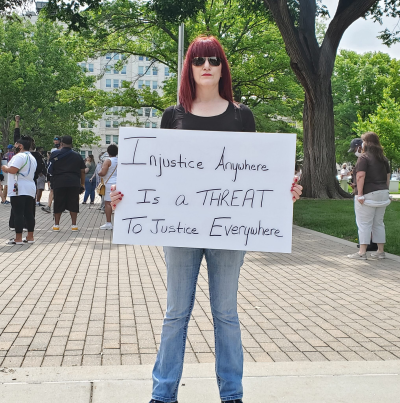 Injustice Anywhere
Is a THREAT
To Justice Everywhere